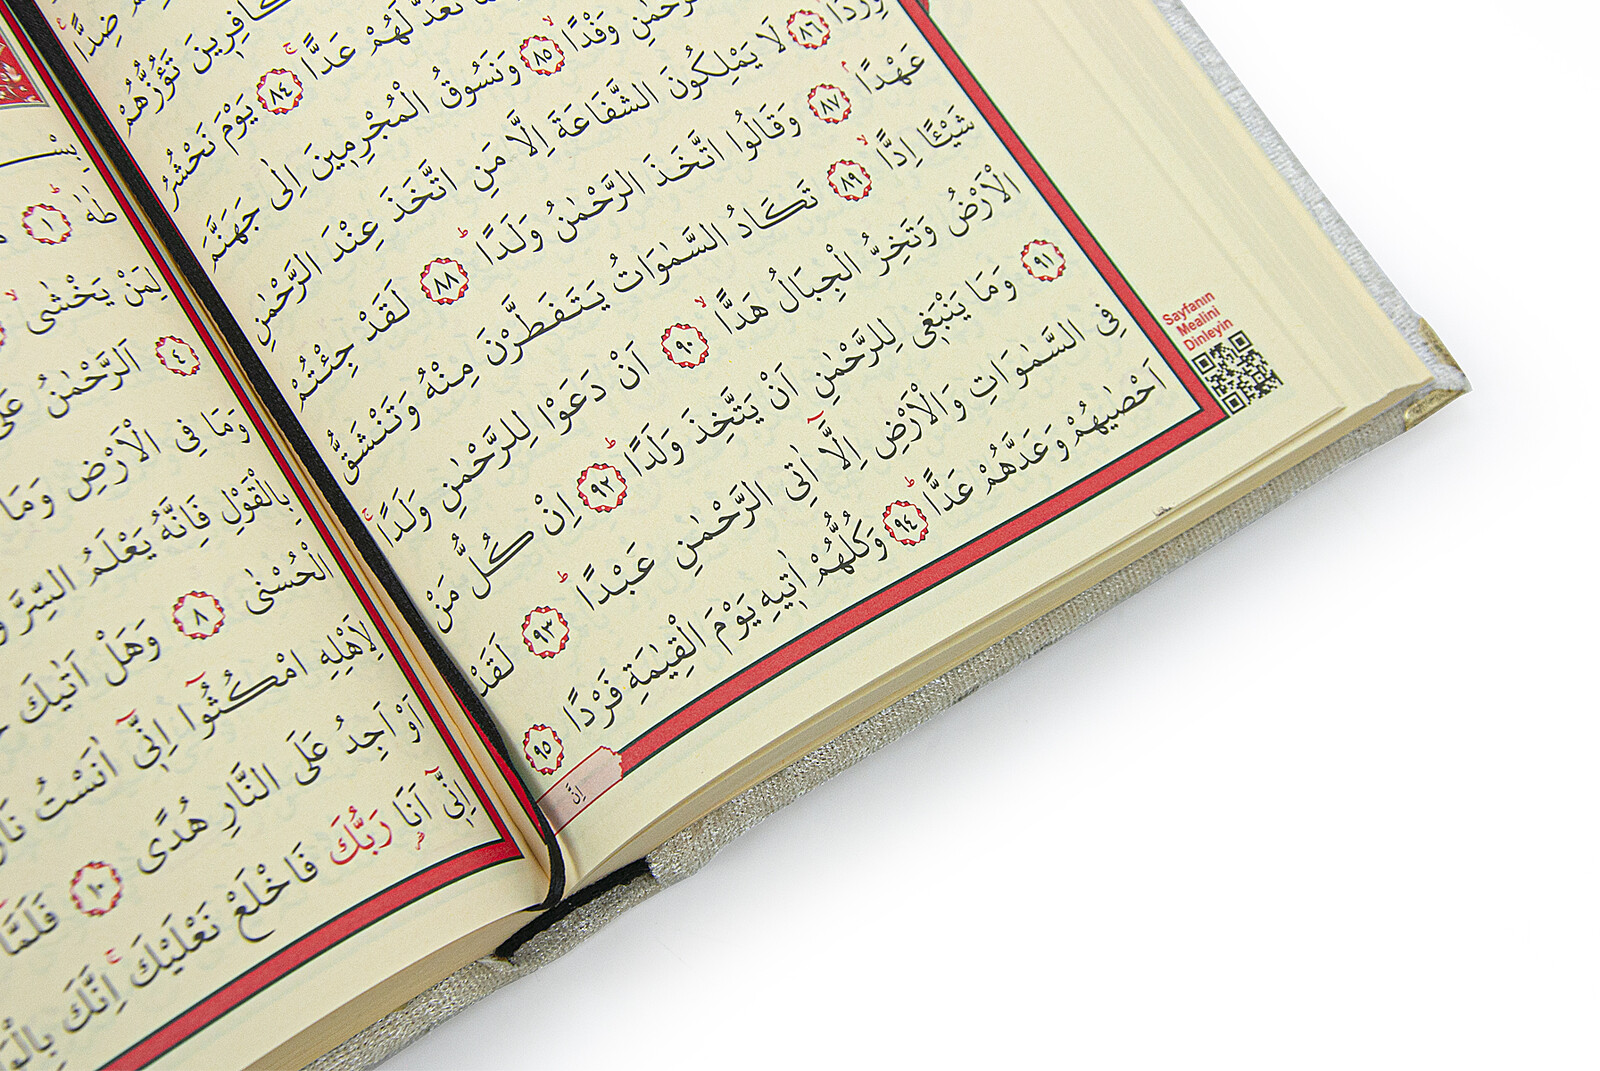 ضِدًّا
تَؤُزُّهُمْ
لَهُمْ عَدًّا ٨٤ يَوْمَ نَحْشُرُ
وَفْدًا ٨٥ وَنَسُوقُ الْمُجْرِمٖينَ اِلٰى جَهَنَّمَ
وِرْدًا ٨٦ لَا يَمْلِكُونَ الشَّفَاعَةَ اِلَّا مَنِ اتَّخَذَ عِنْدَ الرَّحْمٰنِ
عَهْدًا ٨٧ وَقَالُوا اتَّخَذَ الرَّحْمٰنُ وَلَدًا ٨٨ لَقَدْ جِئْتُمْ
شَيْـًٔا اِدًّا ٨٩ تَكَادُ السَّمٰوَاتُ يَتَفَطَّرْنَ مِنْهُ وَتَنْشَقُّ
الْاَرْضُ وَتَخِرُّ الْجِبَالُ هَدًّا ٩٠ اَنْ دَعَوْا لِلرَّحْمٰنِ وَلَدًا
٩١ وَمَا يَنْبَغٖي لِلرَّحْمٰنِ اَنْ يَتَّخِذَ وَلَدًا ٩٢ اِنْ كُلُّ مَنْ
فِي السَّمٰوَاتِ وَالْاَرْضِ اِلَّٓا اٰتِي الرَّحْمٰنِ عَبْدًا ٩٣ لَقَدْ
اَحْصٰيهُمْ وَعَدَّهُمْ عَدًّا ٩٤ وَكُلُّهُمْ اٰتٖيهِ يَوْمَ الْقِيٰمَةِ فَرْدًا ٩٥
اِنَّ
Sayfanın
Mealini
Dinleyin
طٰهٰ ١
لِمَنْ يَخْشٰى
٤ اَلرَّحْمٰنُ
وَمَا فِي الْاَرْضِ وَمَا
بِالْقَوْلِ فَاِنَّهُ يَعْلَمُ السِّرَّ
الْحُسْنٰى ٨ وَهَلْ اَتٰيكَ
لِاَهْلِهِ امْكُثُٓوا اِنّٖٓي اٰنَسْتُ
اَوْ اَجِدُ عَلَى النَّارِ هُدًى ١٠ فَلَمَّٓا
اِنّٖٓي اَنَا رَبُّكَ فَاخْلَعْ نَعْلَيْكَ اِنَّكَ